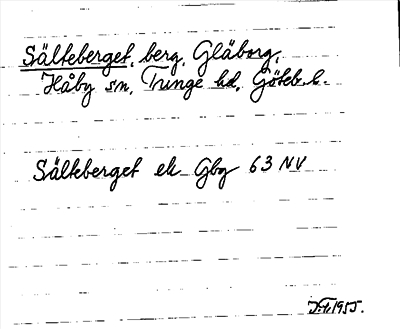 Sälteberget, berg, Gläborg,
Håby sn, Tunge hd, Göteb. l.
Sälteberget ek Gbg 63 NV
1955.